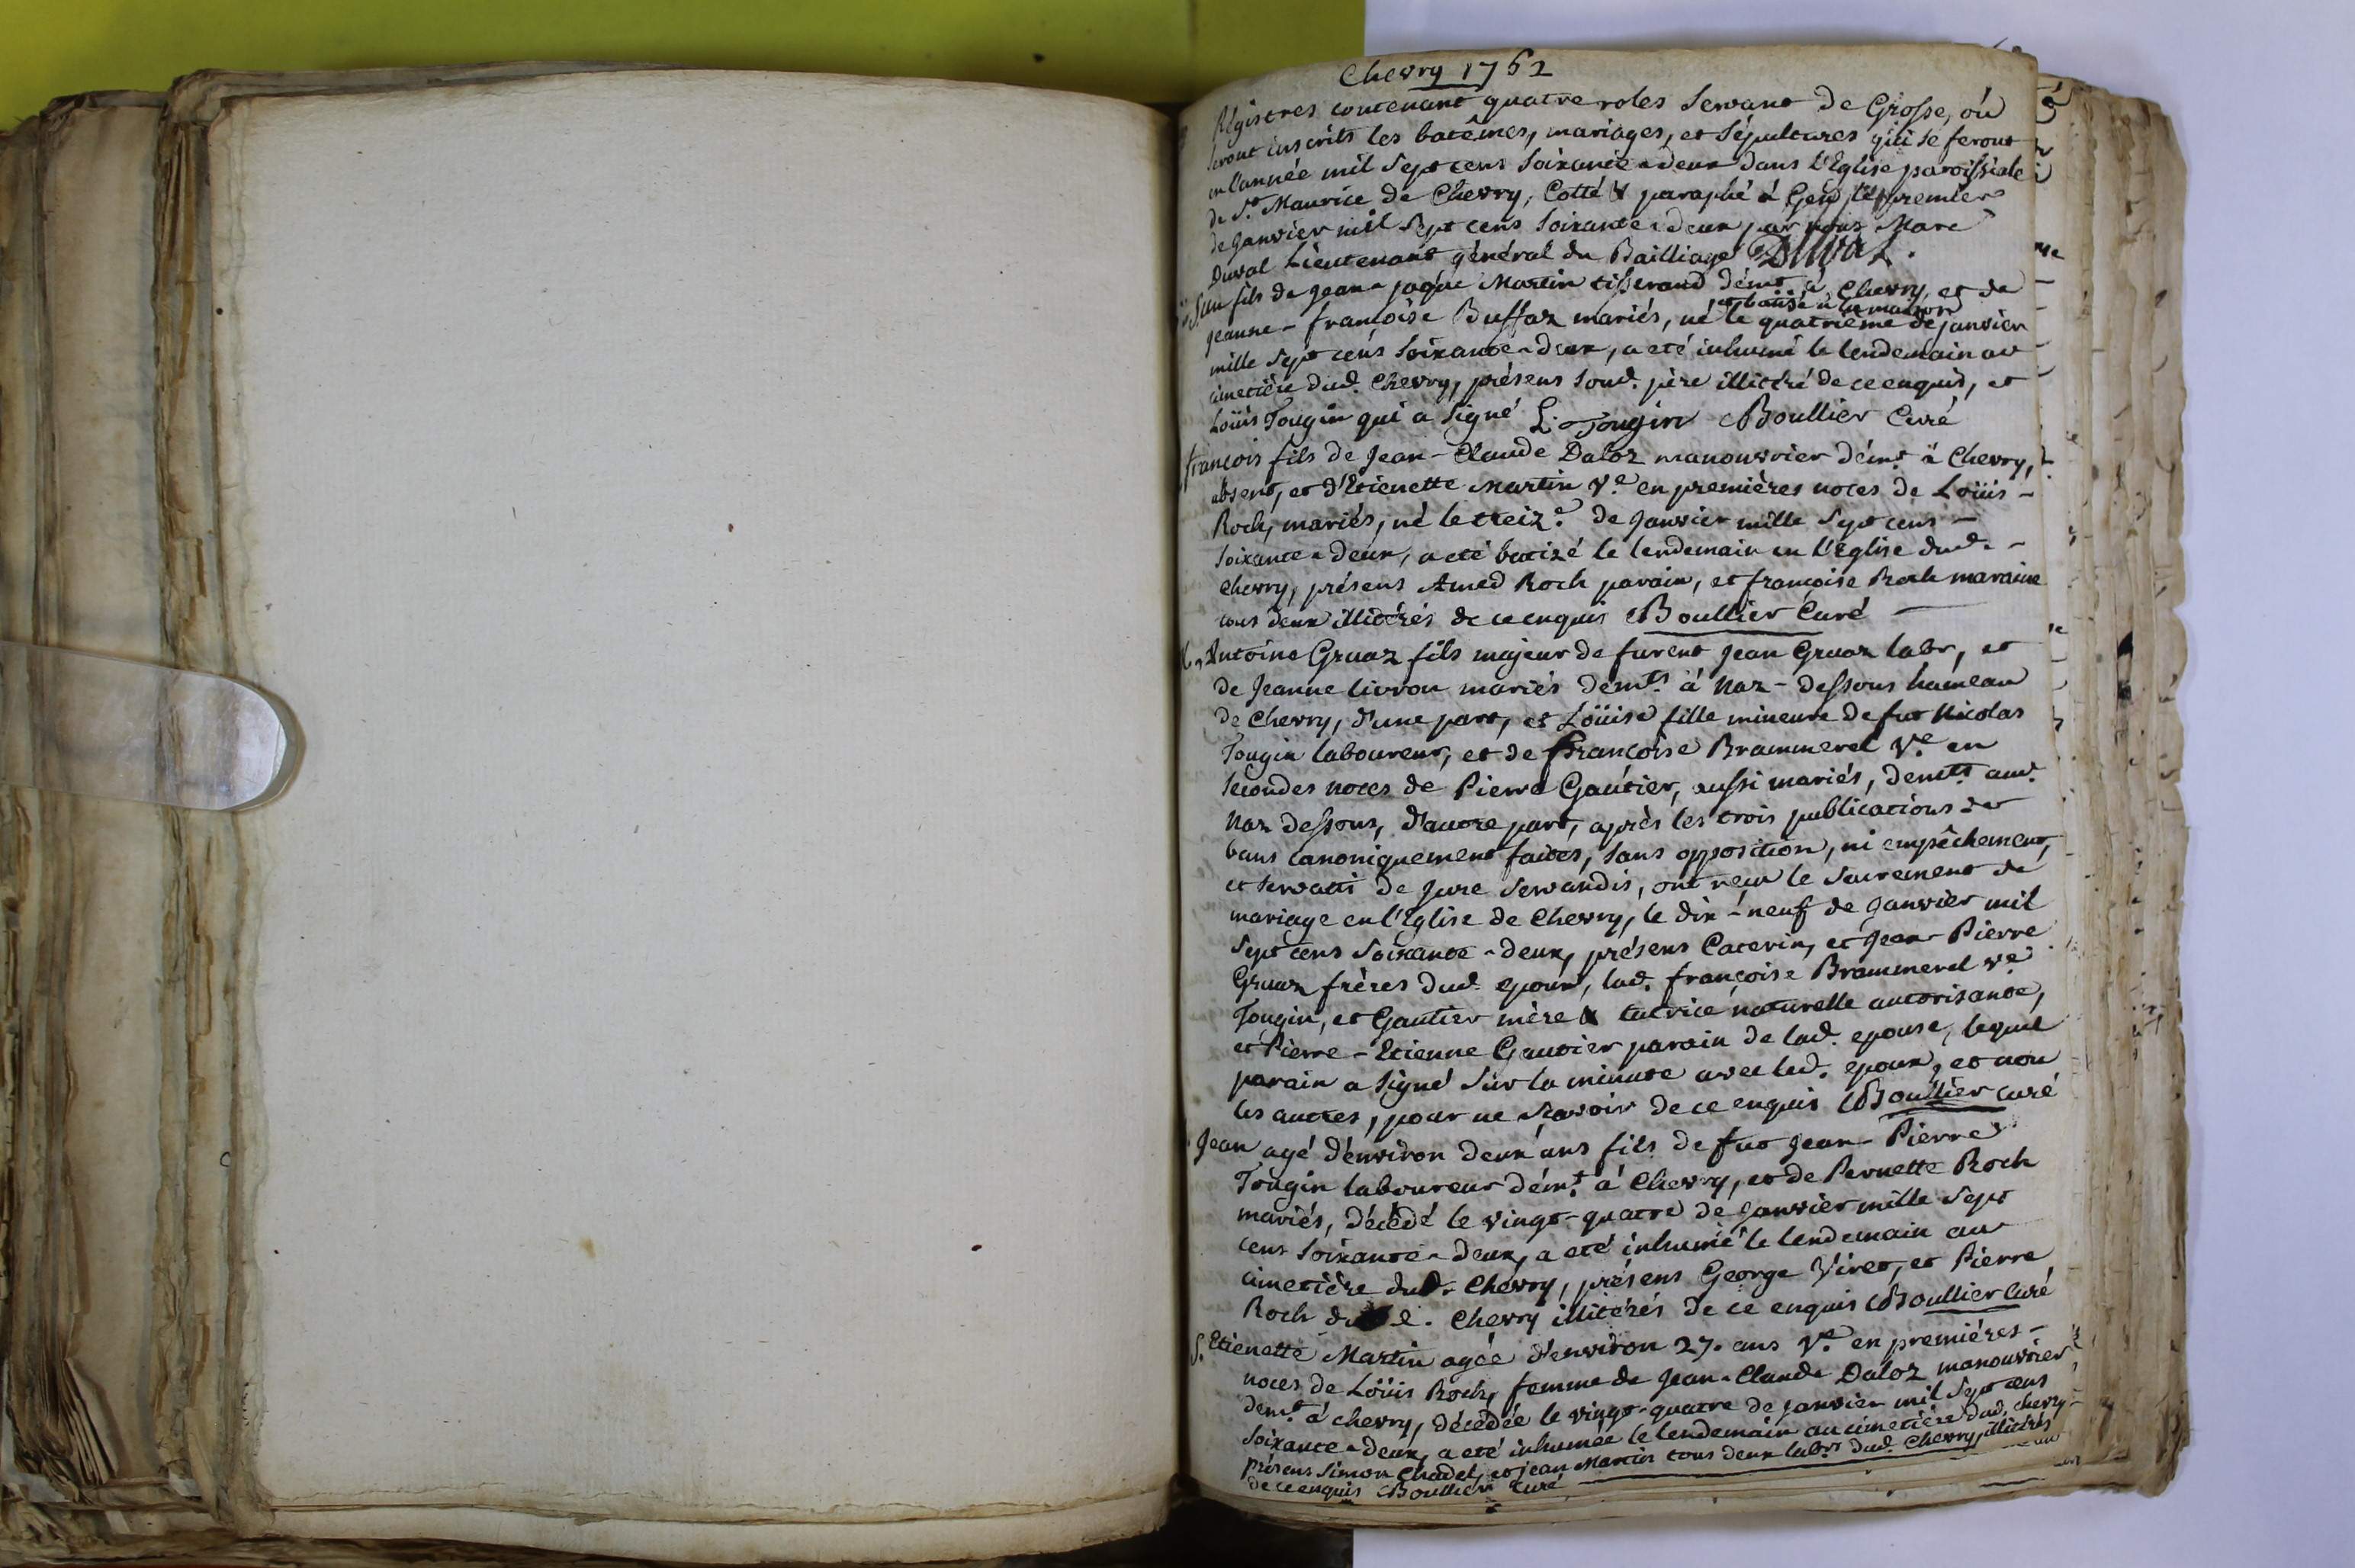 Chevry 1762
Régistres contenant quatre roles servant de Grosse, où
seront inscrits les batêmes, mariages, et Sépultures qui se feront
en l'année mil Sept cens Soixante-deux dans l'Eglise paroissiale
de St. Maurice de Chevry, Cotté & paraphé à Gex le premier
de Janvier mil Sept cens Soixante-deux par nous Marc
Duval Lieutenant général du Bailliage Duval.
S. Un fils de Jean-jaque Martin tisserand demt. à Chevry, et de
et batisé à la maison
jeanne-françoise Buffaz mariés, né le quatrième de janvier
mille Sept cens Soixante-deux, a eté inhumé le lendemain au
cimetière dud. Chevry, présens soud. père illitéré de ce enquis, et
Loüis Tougin qui a Signé L. Tougin Boullier Curé
françois fils de Jean-Claude Daloz manouvrier demt. à Chevry,
absent, et d'Etienette Martin Ve. en premières noces de Loüis-
Roch, mariés, né le treize. de Janvier mille Sept cens-
Soixante-deux, a eté batizé le lendemain en l'Eglise dud.-
Chevry, présens Amed Roch parain, et françoise Roch maraine
tous deux illitérés de ce enquis Boullier Curé
Antoine Gruaz fils majeur de furent Jean Gruaz labr, et
de Jeanne Livron mariés demts. à Naz-dessous hameau
de Chevry, d'une part, et Loüise fille mineure de fut Nicolas
Tougin laboureur, et de françoise Brammerel Ve. en
secondes noces de Pierre Gautier, aussi mariés, demts. aud.
Naz dessous, d'autre part, après les trois publications des
bans canoniquement faites, Sans opposition, ni empêchement,
et servatis de jure servandis, ont reçu le Sacrement de
mariage en l'Eglise de Chevry, le dix-neuf de Janvier mil
Sept cens Soixante-deux, présens Caterin, et Jean-Pierre
Gruaz frères dud. epoux, lad. françoise Brammerel ve.
Tougin, et Gautier mère & tutrice naturelle autorisante,
et Pierre-Etienne Gautier parain de lad. epouse, lequel
parain a signé Sur la minute avec led. epoux, et non
les autres, pour ne Scavoir de ce enquis Boullier curé
Jean agé d'environ deux ans fils de fut Jean-Pierre
Tougin laboureur demt. à Chevry, et de Pernette Roch
mariés, décédé le vingt-quatre de Janvier mille Sept
cens Soixante-deux, a eté inhumé le lendemain au
cimetière dud. Chevry, présens George Viret, et Pierre
Roch dud. Chevry illitérés de ce enquis Boullier Curé
S. Etienette Martin agée d'environ 27. ans Ve. en premières-
noces de Loüis Roch, femme de Jean-Claude Daloz manouvrier
demt. à chevry, décédée le vingt-quatre de janvier mil Sept cens
Soixante-deux, a eté inhumée le lendemain au cimetière dud. chevry-
présens Simon Chadel, et jean Martin tous deux labrs. dud. Chevry, illitérés
de ce enquis Boullier Curé